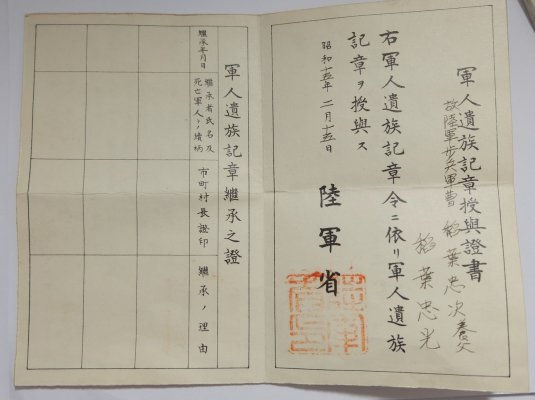 軍人遺族記章授與證書
故陸軍歩兵軍曹 稲葉忠次養父
稲葉忠光
右軍人遺族記章令ニ依リ軍人遺族
記章ヲ授與ス
昭和十五年二月十五日
陸軍省
軍人遺族記章繼承之證
繼承年月日
繼承者氏名及
死亡軍人トノ續柄
市町村長證印
繼承ノ理由